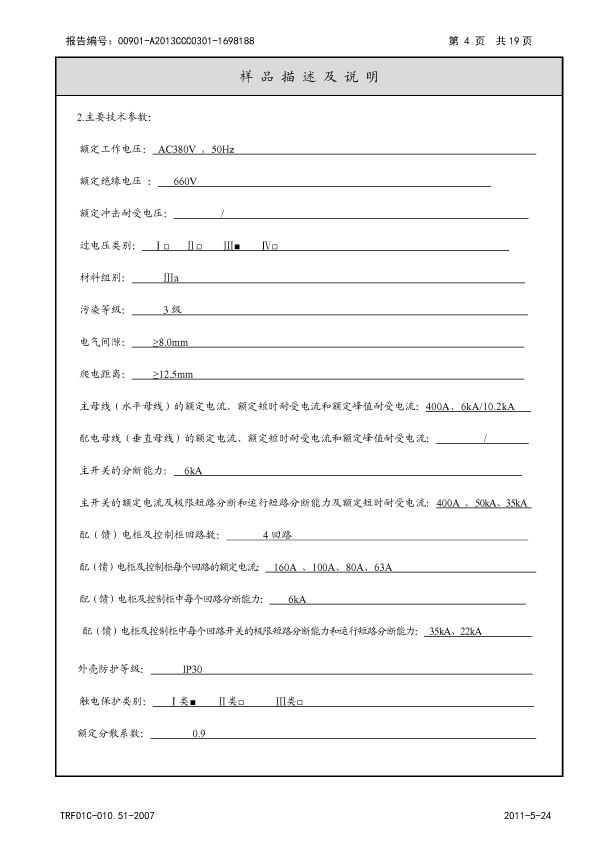 报告编号：00901-A2013CCC0301-1698188 第 4 页 共19页
样 品 描 述 及 说 明
2.主要技术参数：
额定工作电压： AC380V ，50Hz
额定绝缘电压 ： 660V
额定冲击耐受电压： /
过电压类别： Ⅰ□ Ⅱ□ Ⅲ■ Ⅳ□
材料组别： Ⅲa
污染等级： 3 级
电气间隙： ≥8.0mm
爬电距离： ≥12.5mm
主母线（水平母线）的额定电流、额定短时耐受电流和额定峰值耐受电流：400A、6kA/10.2kA
配电母线（垂直母线）的额定电流、额定短时耐受电流和额定峰值耐受电流： /
主开关的分断能力： 6kA
主开关的额定电流及极限短路分断和运行短路分断能力及额定短时耐受电流：400A 、50kA、35kA
配（馈）电柜及控制柜回路数： 4 回路
配（馈）电柜及控制柜每个回路的额定电流： 160A 、100A、80A、63A
配（馈）电柜及控制柜中每个回路分断能力： 6kA
配（馈）电柜及控制柜中每个回路开关的极限短路分断能力和运行短路分断能力： 35kA、22kA
外壳防护等级： IP30
触电保护类别： Ⅰ类■ Ⅱ类□ Ⅲ类□
额定分散系数： 0.9
TRF01C-010.51-2007 2011-5-24